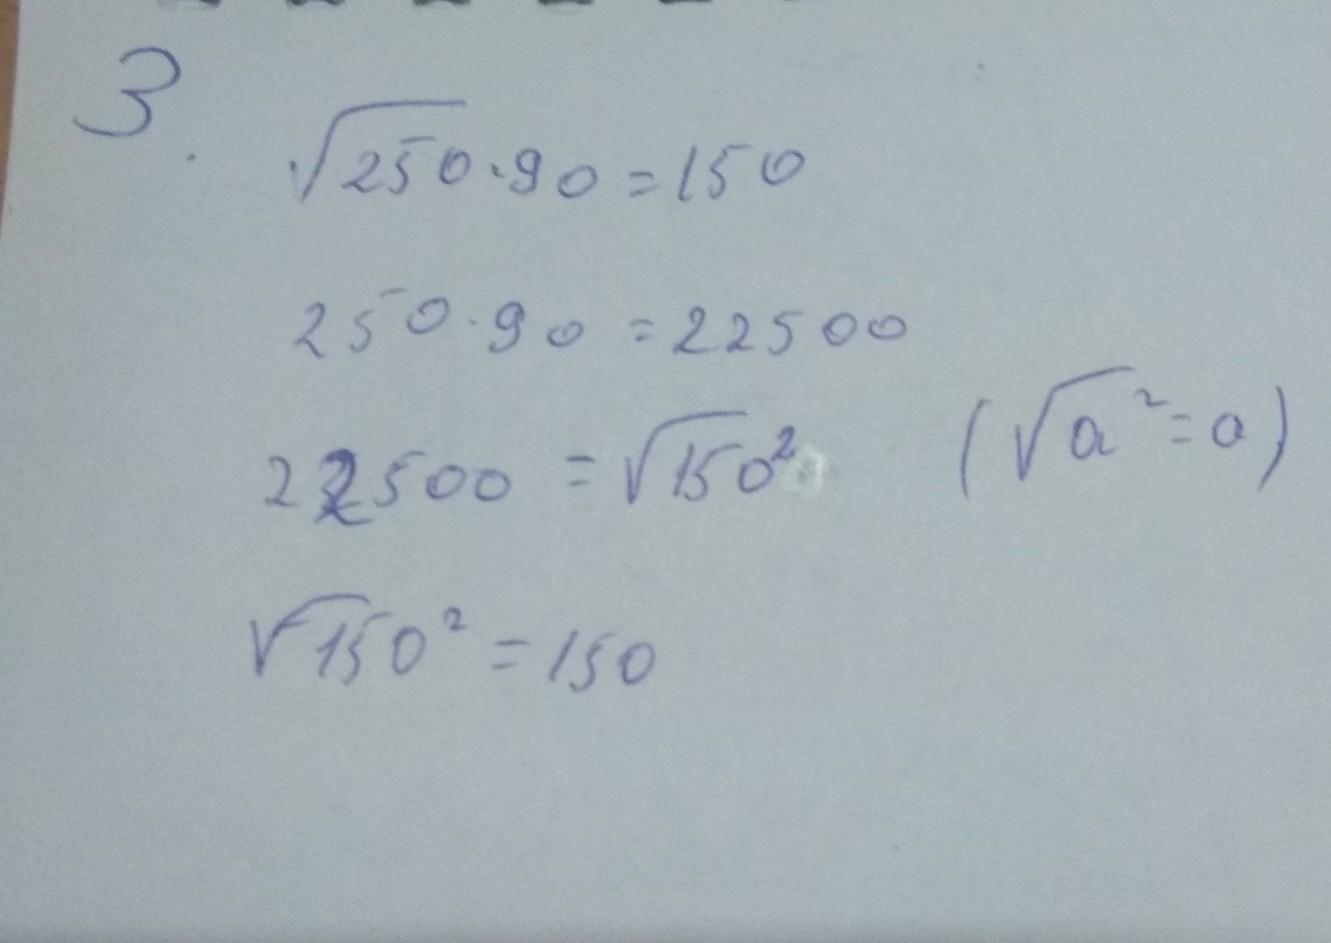 3.
√250·90 = 150
250·90 = 22500
22500 = √150² (√a² = a)
√150² = 150